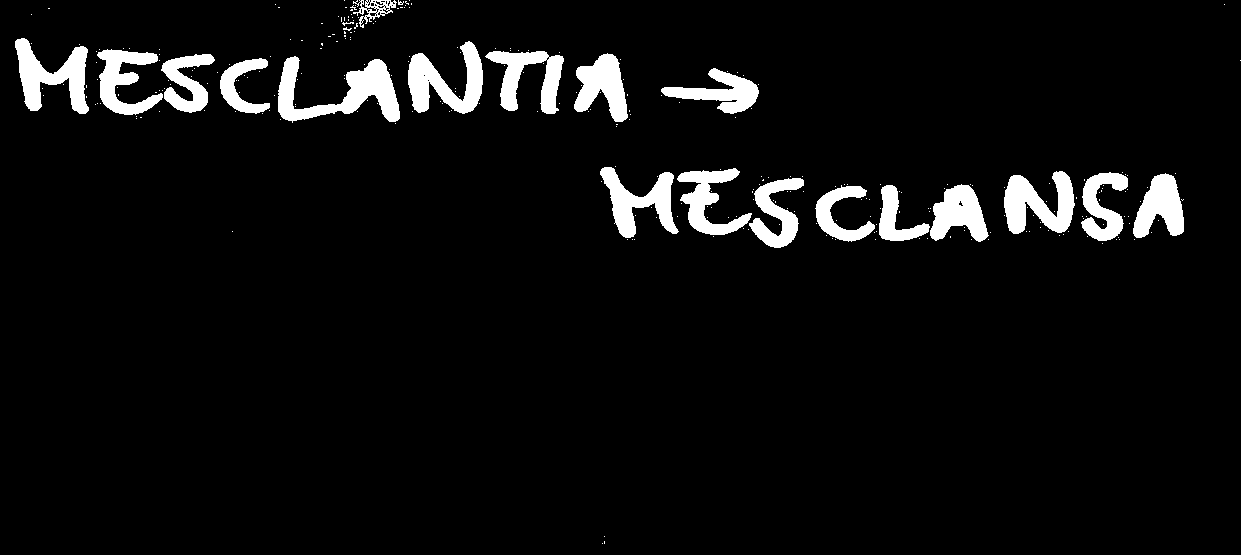 MESCLANTIA →
MESCLANSA